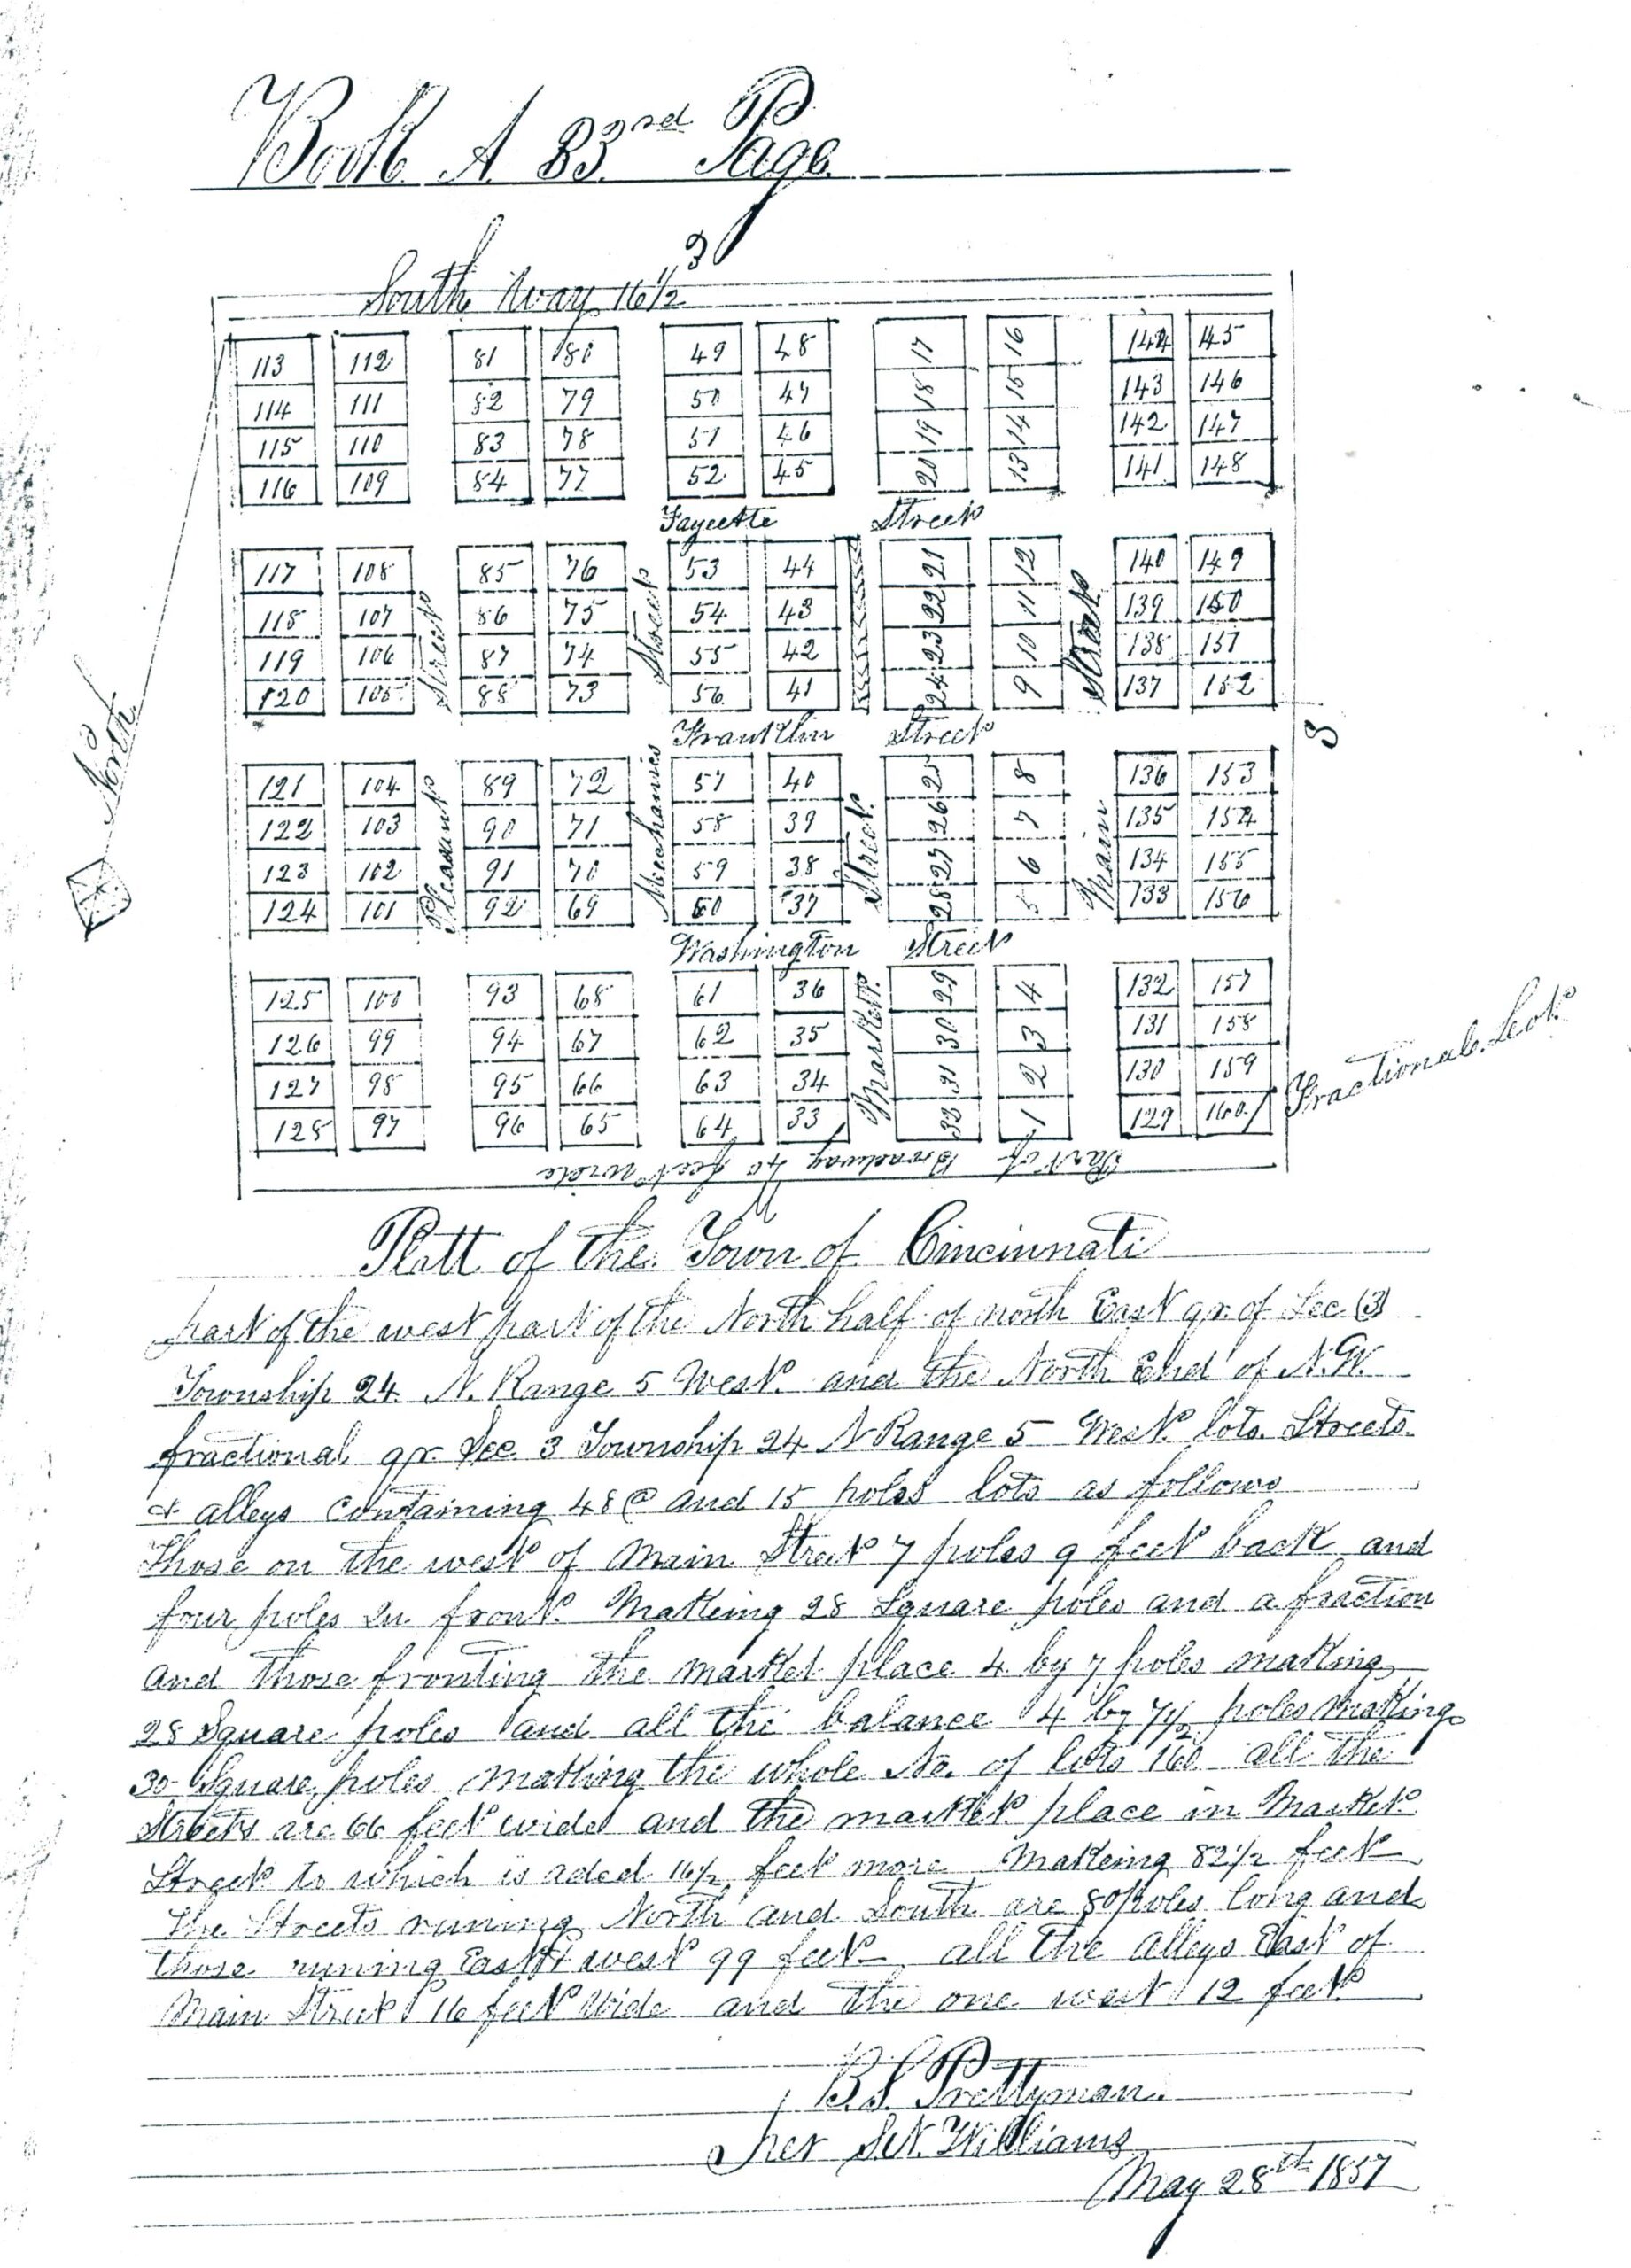 Book A 83rd Page
3
South Way 16 1/2
113 112 81 80 49 48 17 16 144 145
114 111 82 79 50 47 18 15 143 146
115 110 83 78 51 46 19 14 142 147
116 109 84 77 52 45 20 13 141 148
Fayeette Street
117 108 85 76 53 44 21 12 140 149
118 107 86 75 54 43 22 11 139 150
119 106 87 74 55 42 23 10 138 151
120 105 88 73 56 41 24 9 137 152
Franklin Street
3
121 104 89 72 57 40 25 8 136 153
122 103 90 71 58 39 26 7 135 154
123 102 91 70 59 38 27 6 134 155
124 101 92 69 60 37 28 5 133 156
Pleasant Street
Mechanics Street
Market Street
Main Street
North
Washington Street
125 100 93 68 61 36 29 4 132 157
126 99 94 67 62 35 30 3 131 158
127 98 95 66 63 34 31 2 130 159
128 97 96 65 64 33 32 1 129 160
Fractional Lot
Part of Broadway 40 feet wide
Platt of the Town of Cincinnati
part of the west part of the North half of north East qr. of Sec (3)
Township 24 N. Range 5 West. and the North End of N.W.
fractional qr. Sec. 3 Township 24 N Range 5 West lots. Streets.
& alleys containing 48 @ and 15 poles lots as follows
Those on the west of Main Street 7 poles 9 feet back and
four poles in front. Makeing 28 Square poles and a fraction
and those fronting the market place 4 by 7 poles making
28 Square poles and all the balance 4 by 7 1/2 poles making
30 Square poles making the whole No. of lots 160 all the
Streets are 66 feet wide and the market place in Market
Street to which is aded 16 1/2 feet more Makeing 82 1/2 feet
The Streets runing North and South are 80 poles long and
those runing East & west 99 feet all the alleys East of
Main Street 16 feet Wide and the one west 12 feet
B.S. Prettyman.
Per Williams
May 28th 1857